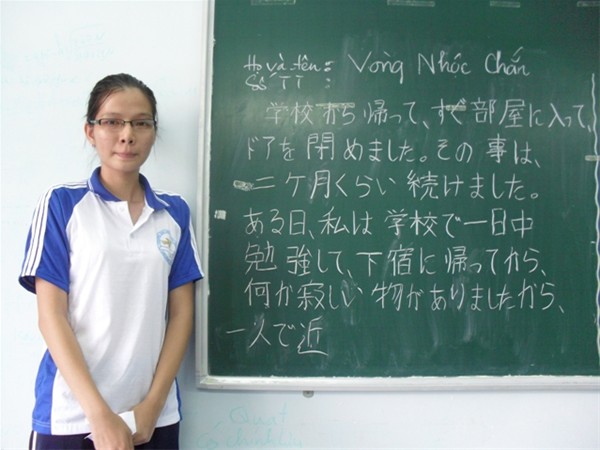 Họ và tên: Vòng Nhóc Chắn
Số TT :
学校から帰って、すぐ部屋に入って、
ドアを閉めました。その事は、
二ケ月くらい続けました。
ある日、私は学校で一日中
勉強して、下宿に帰ってから、
何か寂しい物がありましたから、
一人で近